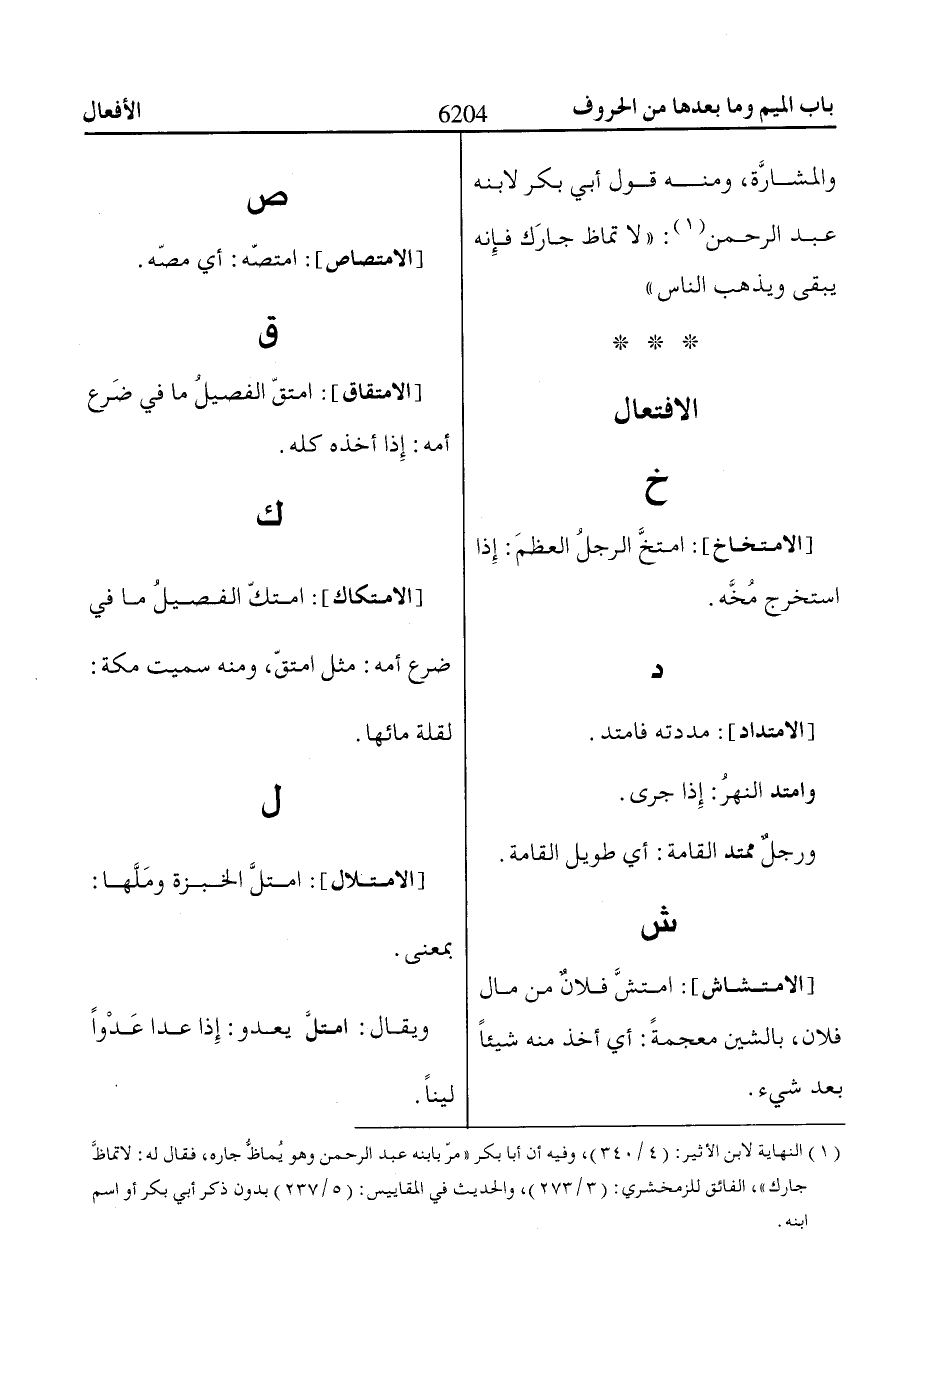 باب الميم وما بعدها من الحروف 6204 الأفعال
والمشارَّة، ومنه قول أبي بكر لابنه
عبد الرحمن(١): «لا تماظ جارَك فإِنه
يبقى ويذهب الناس»
* * *
الافتعال
خ
[الامتخاخ]: امتخَّ الرجلُ العظمَ: إِذا
استخرج مُخَّه.
د
[الامتداد]: مددته فامتد.
وامتد النهرُ: إِذا جرى.
ورجلٌ ممتد القامة: أي طويل القامة.
ش
[الامتشاش]: امتشَّ فلانٌ من مال
فلان، بالشين معجمةً: أي أخذ منه شيئاً
بعد شيء.
ص
[الامتصاص]: امتصّه: أي مصّه.
ق
[الامتقاق]: امتقّ الفصيلُ ما في ضَرع
أمه: إِذا أخذه كله.
ك
[الامتكاك]: امتكّ الفصيلُ ما في
ضرع أمه: مثل امتقّ، ومنه سميت مكة:
لقلة مائها.
ل
[الامتلال]: امتلَّ الخبزة ومَلَّها:
بمعنى.
ويقال: امتلَّ يعدو: إِذا عدا عَدْواً
ليناً.
(١) النهاية لابن الأثير: (٣٤٠/٤)، وفيه أن أبا بكر «مرّ بابنه عبد الرحمن وهو يُماظُّ جاره، فقال له: لاتماظَّ
جارك»، الفائق للزمخشري: (٢٧٣/٣)، والحديث في المقاييس: (٢٣٧/٥) بدون ذكر أبي بكر أو اسم
ابنه.